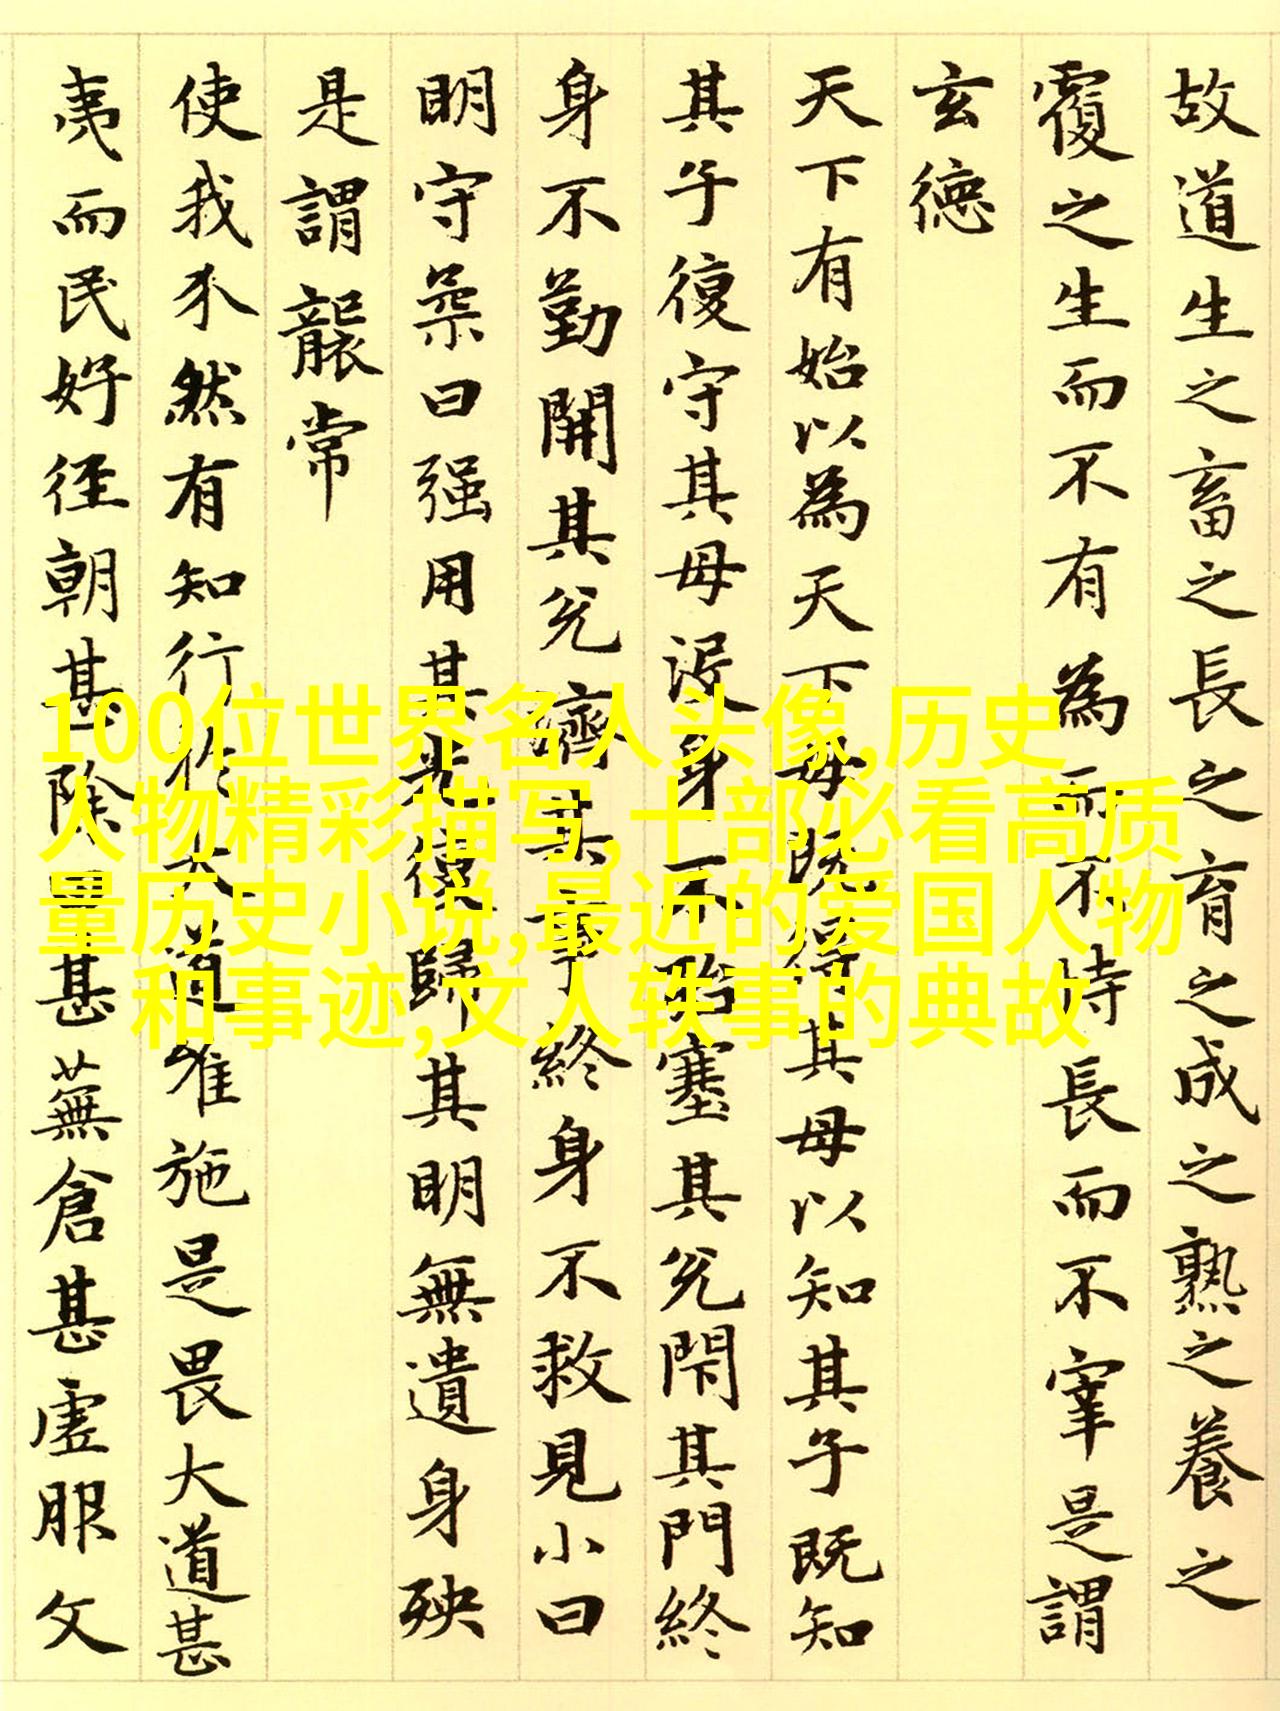 故道生之畜之長之育之成之熟之養之
覆之生而不有為而不恃長而不宰是謂
玄德
天下有始以為天下母既得其母以知其子既知
其子復守其母没身不殆塞其兊閇其門終
身不勤開其兊濟其事終身不救見小曰
明守柔曰强用其光復歸其明無遺身殃
是謂襲常
使我介然有知行於大道唯施是畏大道甚
夷而民好徑朝甚除田甚蕪倉甚虛服文
100位世界名人头像,历史
人物精彩描写,十部必看高质
量历史小说,最近的爱国人物
和事迹,文人轶事的典故